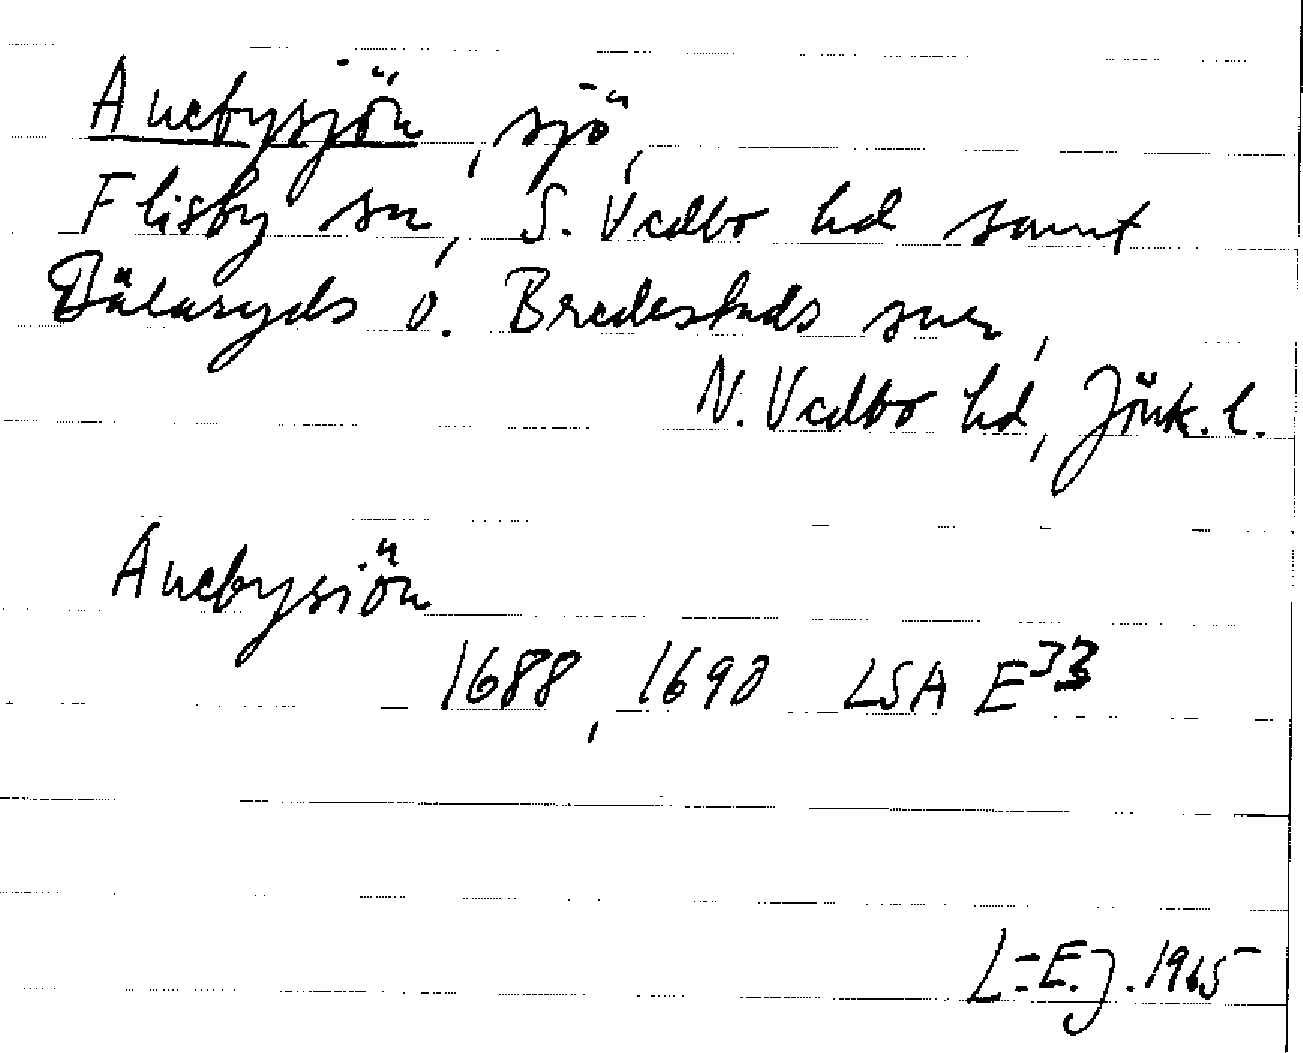 Anebysjön, sjö,
Flisby sn, S. Vedbo hd samt
Bälaryds o. Bredestads snr,
N. Vedbo hd, Jönk. l.
Anebysiön
1688, 1690 LSA E33
L-E.J. 1965